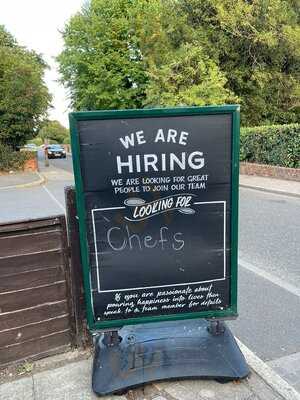 WE ARE
HIRING
WE ARE LOOKING FOR GREAT
PEOPLE TO JOIN OUR TEAM
LOOKING FOR
Chefs
If you are passionate about
pouring happiness into lives then
speak to a team member for details